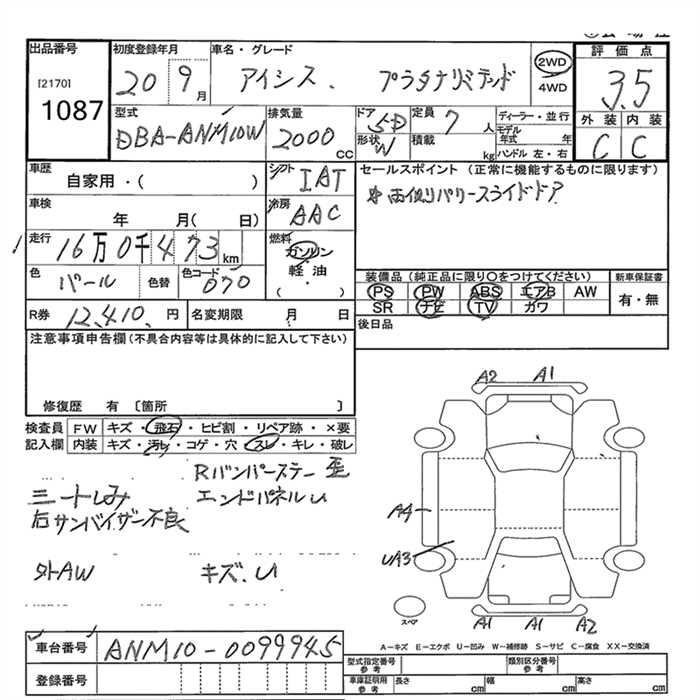 出品番号 初度登録年月 車名・グレード 2WD 4WD 評価点
[2170] 20 9月 アイシス、 プラタナリミテッド 3.5
1087
型式 排気量 ドア形状 定員 ディーラー・並行 外装 内装
DBA-ANM10W 2000cc 5D W 7人 モデル年式 年 C C
積載 kg ハンドル 左・右
車歴 シフト セールスポイント (正常に機能するものに限ります)
自家用・( ) IAT 両側パワースライドドア
車検 冷房
年 月(日) AAC
走行 燃料
16万0千473km ガソリン・軽油・( )
色 パール 色替 色コード 070
装備品 (純正品に限り○をつけてください) 新車保証書
PS PW ABS エアB AW 有・無
SR ナビ TV カワ
R券 12,410円 名変期限 月 日
後日品
注意事項申告欄(不具合内容等は具体的に記入して下さい)
修復歴 有 〔箇所 〕
検査員記入欄 FW キズ・飛石・ヒビ割・リペア跡・×要
内装 キズ・汚レ・コゲ・穴・スレ・キレ・破レ
Rバンパーステー歪
シートしみ エンドパネルU
右サンバイザー不良
外AW キズ・U
A2 A1
A4
UA3
スペア
A1 A1 A2
A-キズ E-エクボ U-凹み W-補修跡 S-サビ C-腐食 XX-交換済
車台番号 ANM10-0099945
登録番号
型式指定番号参考 類別区分番号参考
車庫証明用参考 長さ cm 幅 cm 高さ cm